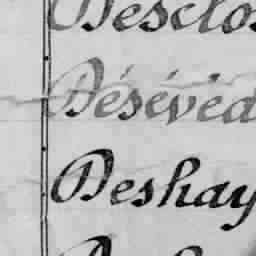 Desclos
Désévéd
Deshay